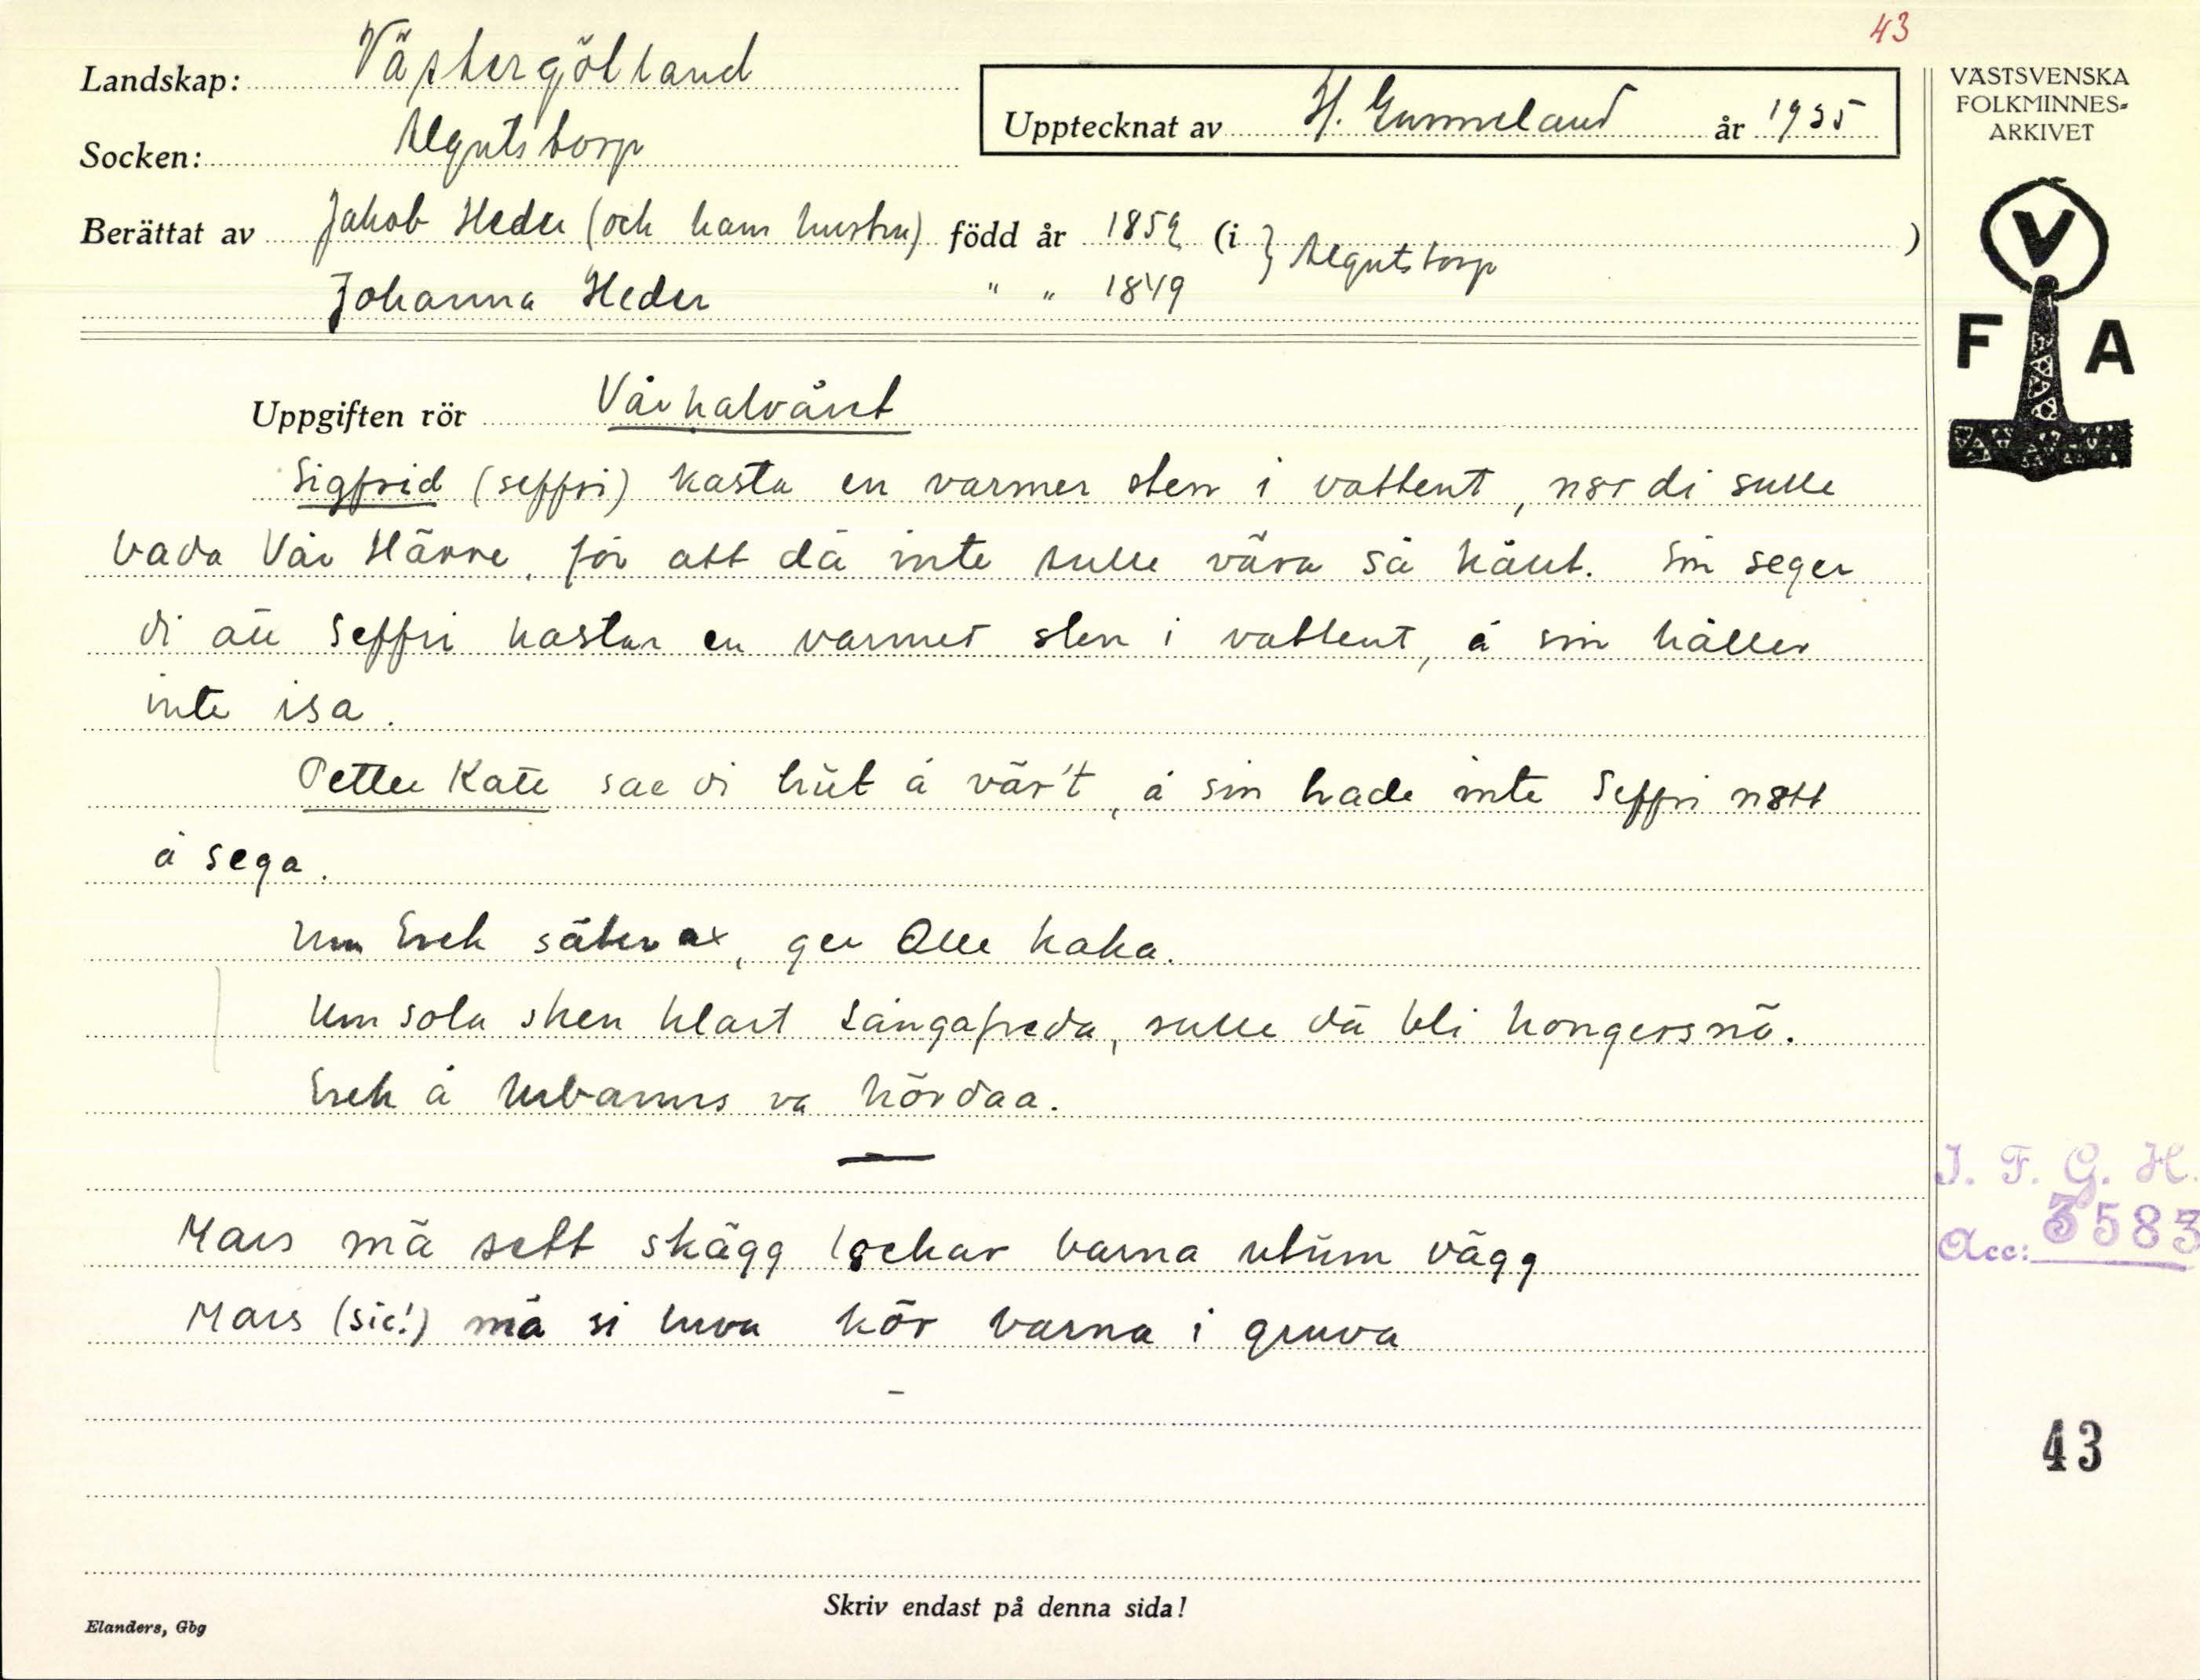 43
Landskap: Västergötland
Socken: Algutstorp
Upptecknat av H. Gunneland år 1935
VÄSTSVENSKA
FOLKMINNES-
ARKIVET
Berättat av Jakob Heder (och hans hustru) född år 1852 (i } Algutstorp )
Johanna Heder " " 1849
V
F A
Uppgiften rör Vårhalvåret
Sigfrid (seffri) kasta en varmer sten i vattent, när di sulle
bada Vår Härre, för att dä inte sulle vära så kålt. Sin seger
di att Seffri kastar en varmer sten i vattent, å sin håller
inte isa.
Petter Katt sae di hüt å vär't, å sin hade inte Seffri nått
å sega.
Um Erek säter ax, ger Olle kaka.
Um sola sken klart Långafreda, sulle dä bli hongersnö.
Erek å Urbanus va hördaa.
Mars mä sett skägg lockar barna utüm vägg
Mars (sic!) mä si luva kör barna i gruva
J. F. G. H.
Acc: 3583
43
Skriv endast på denna sida!
Elanders, Gbg